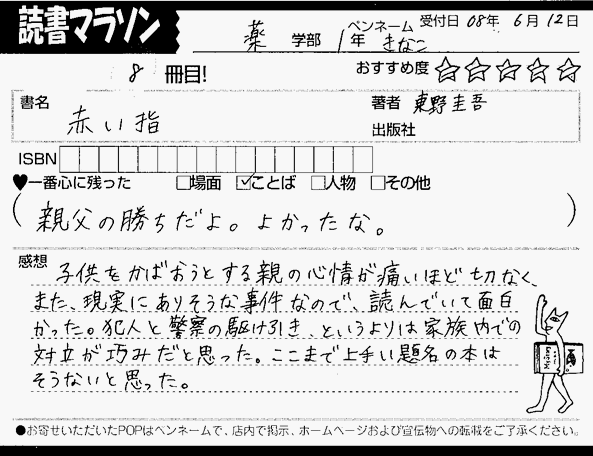 読書マラソン
薬 学部 1年 ペンネーム きなこ 受付日 08年 6月 12日
8 冊目! おすすめ度 ☆☆☆☆☆
書名 赤い指 著者 東野圭吾
出版社
ISBN
♥一番心に残った □場面 ☑ことば □人物 □その他
(親父の勝ちだよ。よかったな。)
感想 子供をかばおうとする親の心情が痛いほど切なく、
また、現実にありそうな事件なので、読んでいて面白
かった。犯人と警察の駆け引き、というよりは家族内での
対立が巧みだと思った。ここまで上手い題名の本は
そうないと思った。
●お寄せいただいたPOPはペンネームで、店内で掲示、ホームページおよび宣伝物への転載をご了承ください。